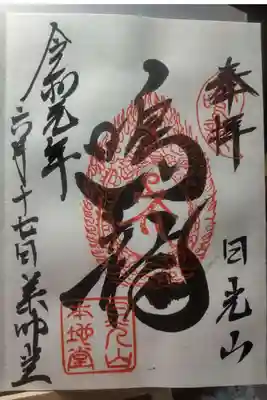 奉拝
日光山
鳴龍
日光山
本地堂
令和元年
六月十七日薬師堂